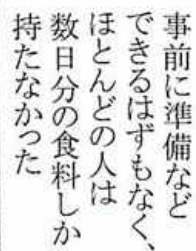 事前に準備など
できるはずもなく、
ほとんどの人は
数日分の食料しか
持たなかった